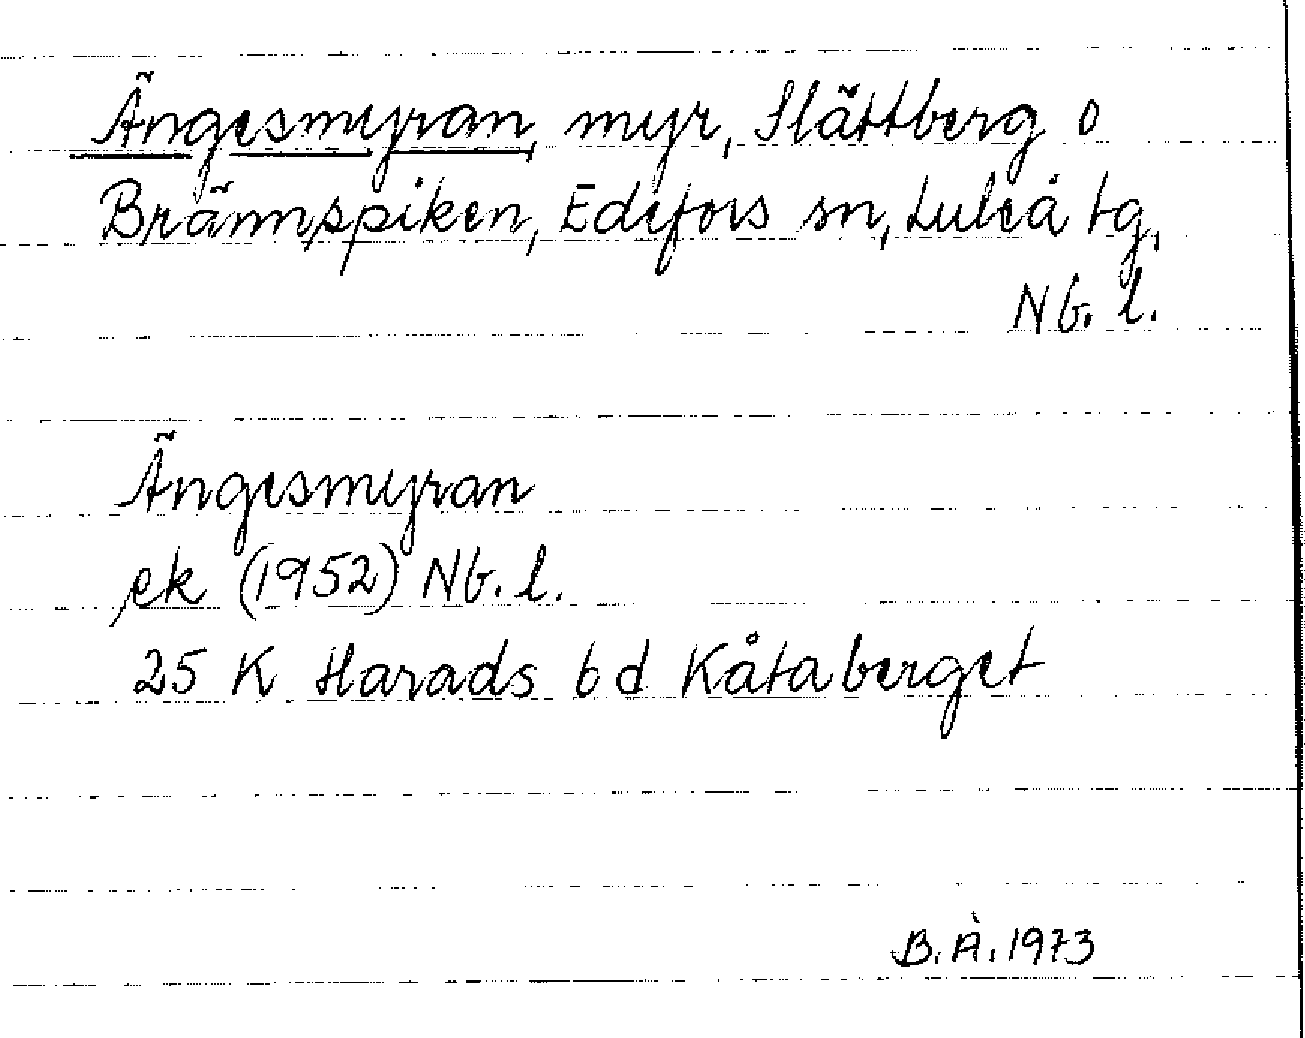 Ängesmyran, myr, Slättberg o
Brännspiken, Edefors sn, Luleå tg,
Nb. l.
Ängesmyran
ek (1952) Nb. l.
25 K Harads bd Kåtaberget
B. Å. 1973